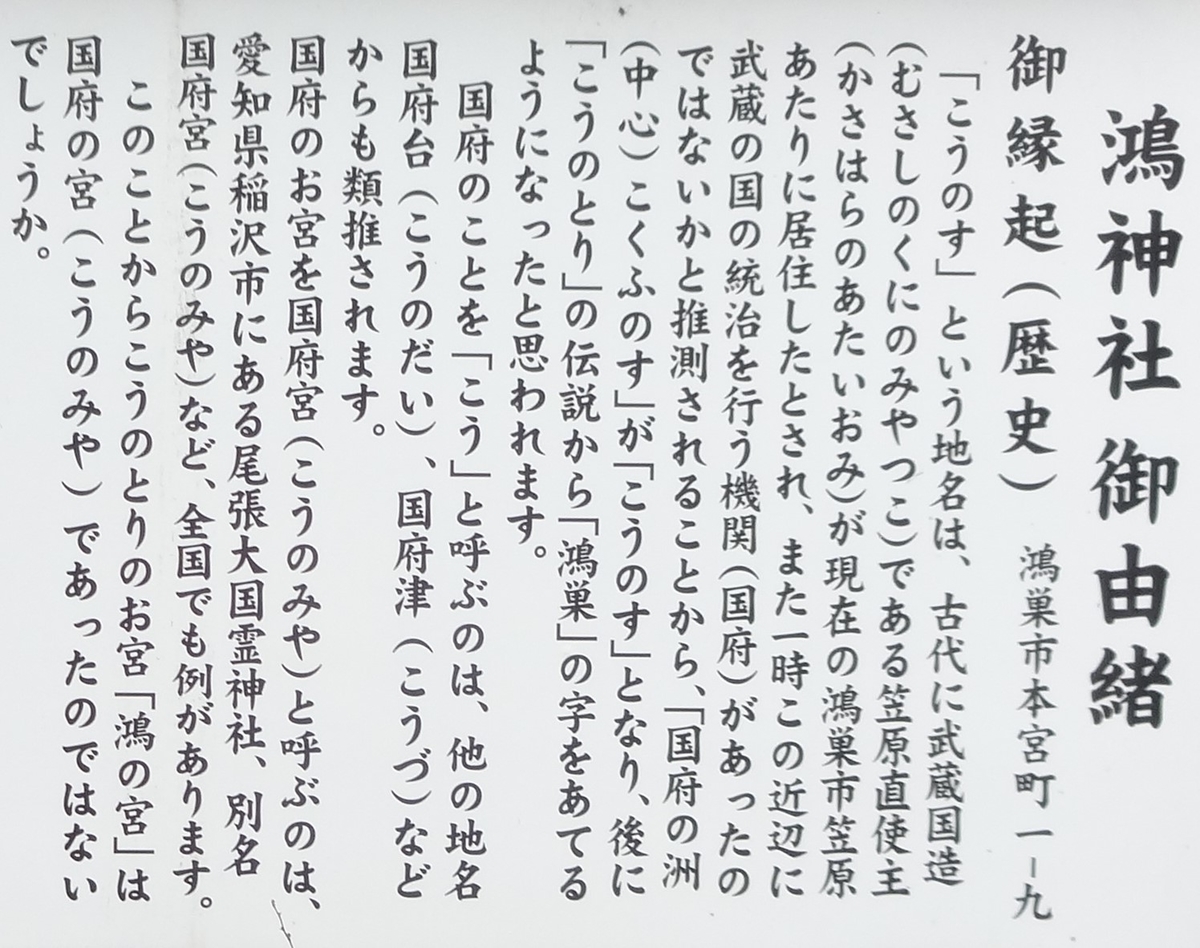 鴻神社 御由緒
御縁起(歴史) 鴻巣市本宮町一-九
「こうのす」という地名は、古代に武蔵国造
(むさしのくにのみやつこ)である笠原直使主
(かさはらのあたいおみ)が現在の鴻巣市笠原
あたりに居住したとされ、また一時この近辺に
武蔵の国の統治を行う機関(国府)があったの
ではないかと推測されることから、「国府の洲
(中心)こくふのす」が「こうのす」となり、後に
「こうのとり」の伝説から「鴻巣」の字をあてる
ようになったと思われます。
国府のことを「こう」と呼ぶのは、他の地名
国府台(こうのだい)、国府津(こうづ)など
からも類推されます。
国府のお宮を国府宮(こうのみや)と呼ぶのは、
愛知県稲沢市にある尾張大国霊神社、別名
国府宮(こうのみや)など、全国でも例があります。
このことからこうのとりのお宮「鴻の宮」は
国府の宮(こうのみや)であったのではない
でしょうか。